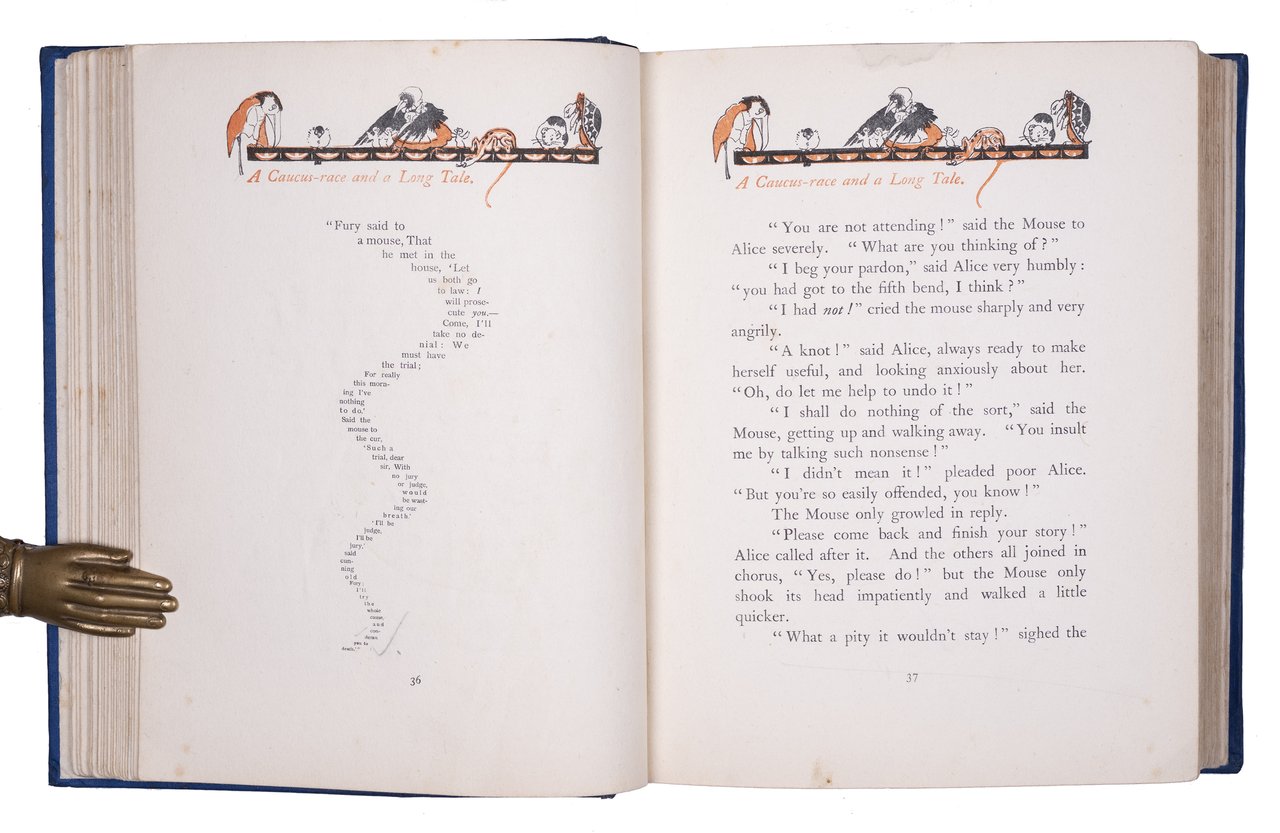 A Caucus-race and a Long Tale.
"Fury said to
a mouse, That
he met in the
house, 'Let
us both go
to law: I
will prose-
cute you.—
Come, I'll
take no de-
nial: We
must have
the trial;
For really
this morn-
ing I've
nothing
to do.'
Said the
mouse to
the cur,
'Such a
trial, dear
sir, With
no jury
or judge,
would
be wast-
ing our
breath.'
'I'll be
judge,
I'll be
jury,'
said
cun-
ning
old
Fury:
I'll
try
the
whole
cause,
and
con-
demn
you to
death.'"
36
A Caucus-race and a Long Tale.
"You are not attending!" said the Mouse to
Alice severely. "What are you thinking of?"
"I beg your pardon," said Alice very humbly:
"you had got to the fifth bend, I think?"
"I had not!" cried the mouse sharply and very
angrily.
"A knot!" said Alice, always ready to make
herself useful, and looking anxiously about her.
"Oh, do let me help to undo it!"
"I shall do nothing of the sort," said the
Mouse, getting up and walking away. "You insult
me by talking such nonsense!"
"I didn't mean it!" pleaded poor Alice.
"But you're so easily offended, you know!"
The Mouse only growled in reply.
"Please come back and finish your story!"
Alice called after it. And the others all joined in
chorus, "Yes, please do!" but the Mouse only
shook its head impatiently and walked a little
quicker.
"What a pity it wouldn't stay!" sighed the
37